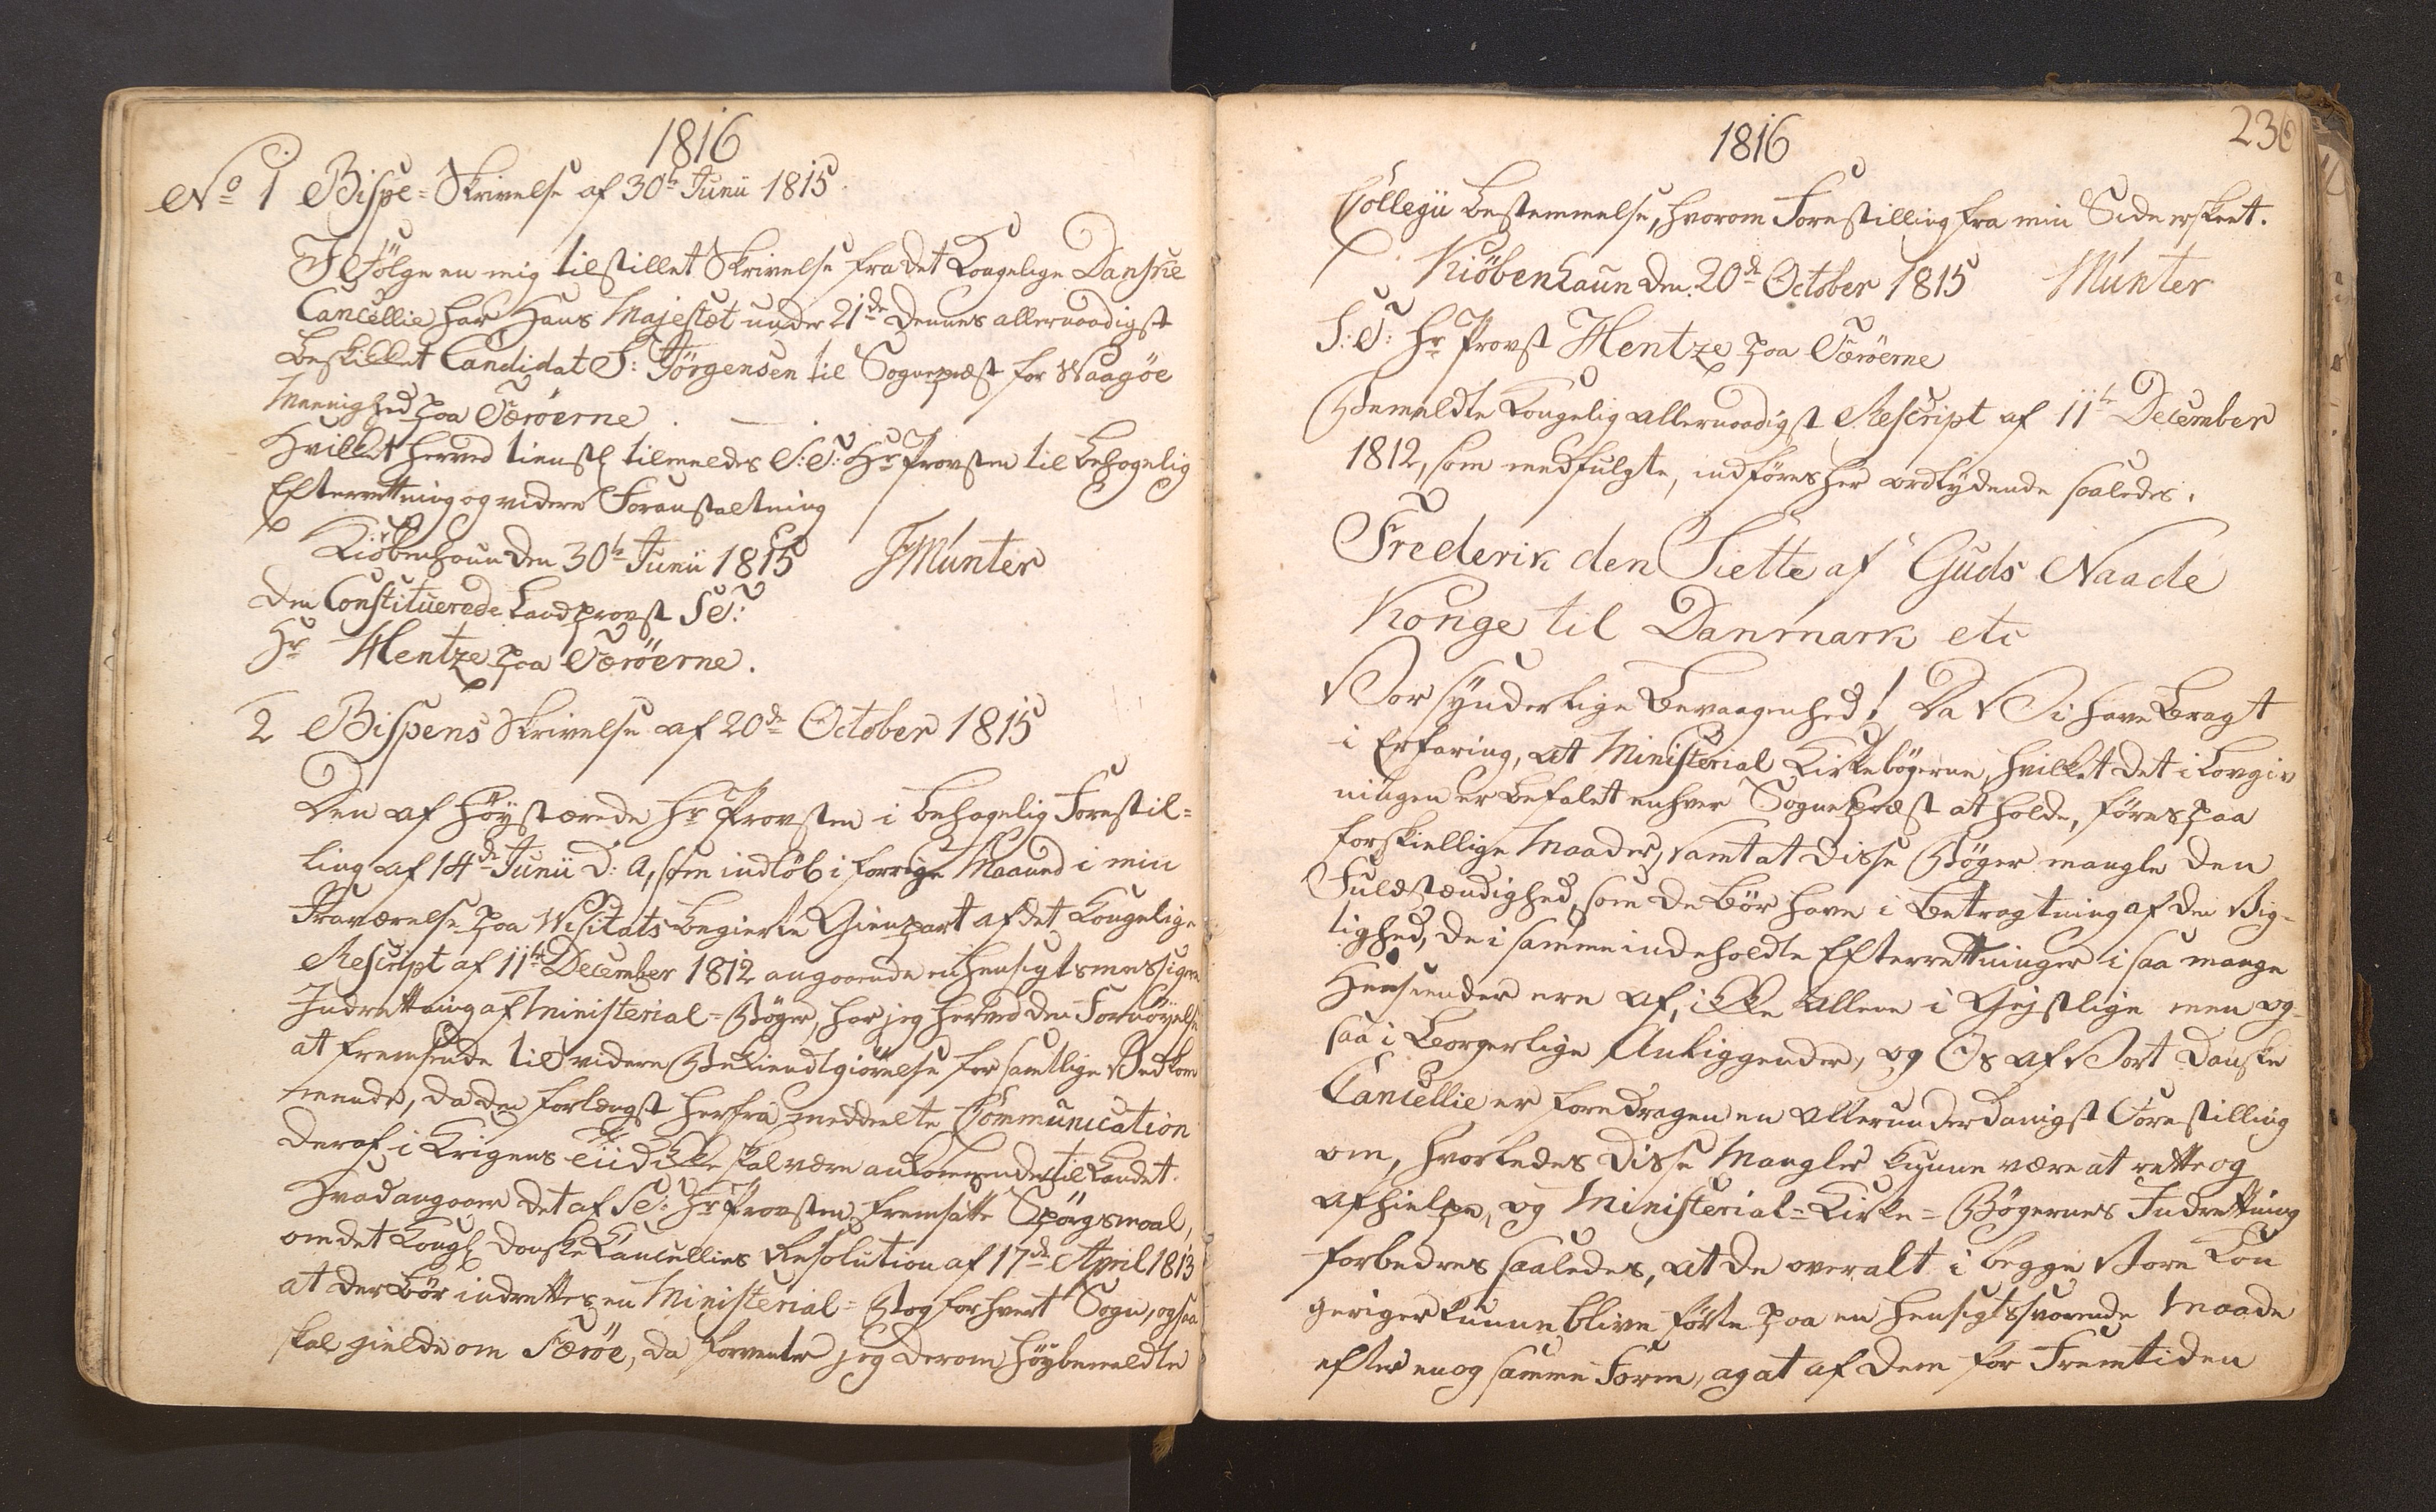 1816
No 1 Bispe=Skrivelse af 30te Junii 1815.
I Følge en mig tilstillet Skrivelse fra det Kongelige Danske
Cancellie, har Hans Majestæt under 21de dennes allernaadigst
beskikket Candidat S: Jörgensen til Sognepræst for Waagöe
Menighed paa Færöerne.
Hvilket herved tienstl tilmeldes S:T: Hr Provsten til behagelig
Efterretning og videre Foranstaltning
Kiöbenhaun den 30te Junii 1815 FMünter
den Constituerede Landprovst S.T:
Hr Hentze paa Færöerne.
2 Bispens Skrivelse af 20de October 1815
Den af Höystærede Hr Provsten i behagelig Forestil=
ling af 14de Junii d: A, som indlöb i forrige Maaned i min
Fraværelse paa Visitats begierte Gienpart af det Kongelige
Rescript af 11te December 1812 angaaende en hensigtsmæssigere
Indretning af Ministerial=Böger, har jeg herved den Fornöyelse
at fremsende til videre Bekiendtgiörelse for samtlige Vedkom
mende, da den forlængst herfra meddeelte Communication
deraf i Krigens Tiid ikke skal være ankommen der til Landet.
Hvad angaaer det af S.T: Hr Provsten fremsatte Spörgsmaal,
om det Kongl Danske Cancellies Resolution af 17de April 1813
at der bör indrettes en Ministerial=Bog for hvert Sogn, ogsaa
skal gielde om Færöe, da forventer jeg derom höybemeldte
1816
236
Collegii bestemmelse, hvorom Forestilling fra min Side er skeet.
Kiöbenhaun den 20de October 1815 Münter
S:T: Hr Provst Hentze paa Færöerne
Bemeldte Kongelig allernaadigst Rescript af 11te December
1812, som medfulgte, indföres her ordlydende saaledes.
Frederik den Siette af Guds Naade
Konge til Danmark etc
Vor synderlige Bevaagenhed! Da Vi have bragt
i Erfaring, at Ministerial Kirkebögerne, hvilket det i Lovgiv
ningen er befalet enhver Sognepræst at holde, föres paa
forskiellige Maader, samt at disse Böger mangle den
Fuldstændighed, som de bör have i Betragtning af den Vig=
tighed, de i samme indeholdte Efterretninger i saa mange
Henseender ere af, ikke allene i Gejstlige men og=
saa i Borgerlige Anliggender, og Os af Vort Danske
Cancellie er foredragen en allerunderdanigst Forestilling
om, hvorledes disse Mangler kunne være at rette og
afhielpe, og Ministerial=Kirke=Bögernes Indretning
forbedres saaledes, at de overalt i begge Vore Kon
geriger kunne blive förte paa en hensigtssvarende Maade
efter en og samme Form, og at af dem for Fremtiden